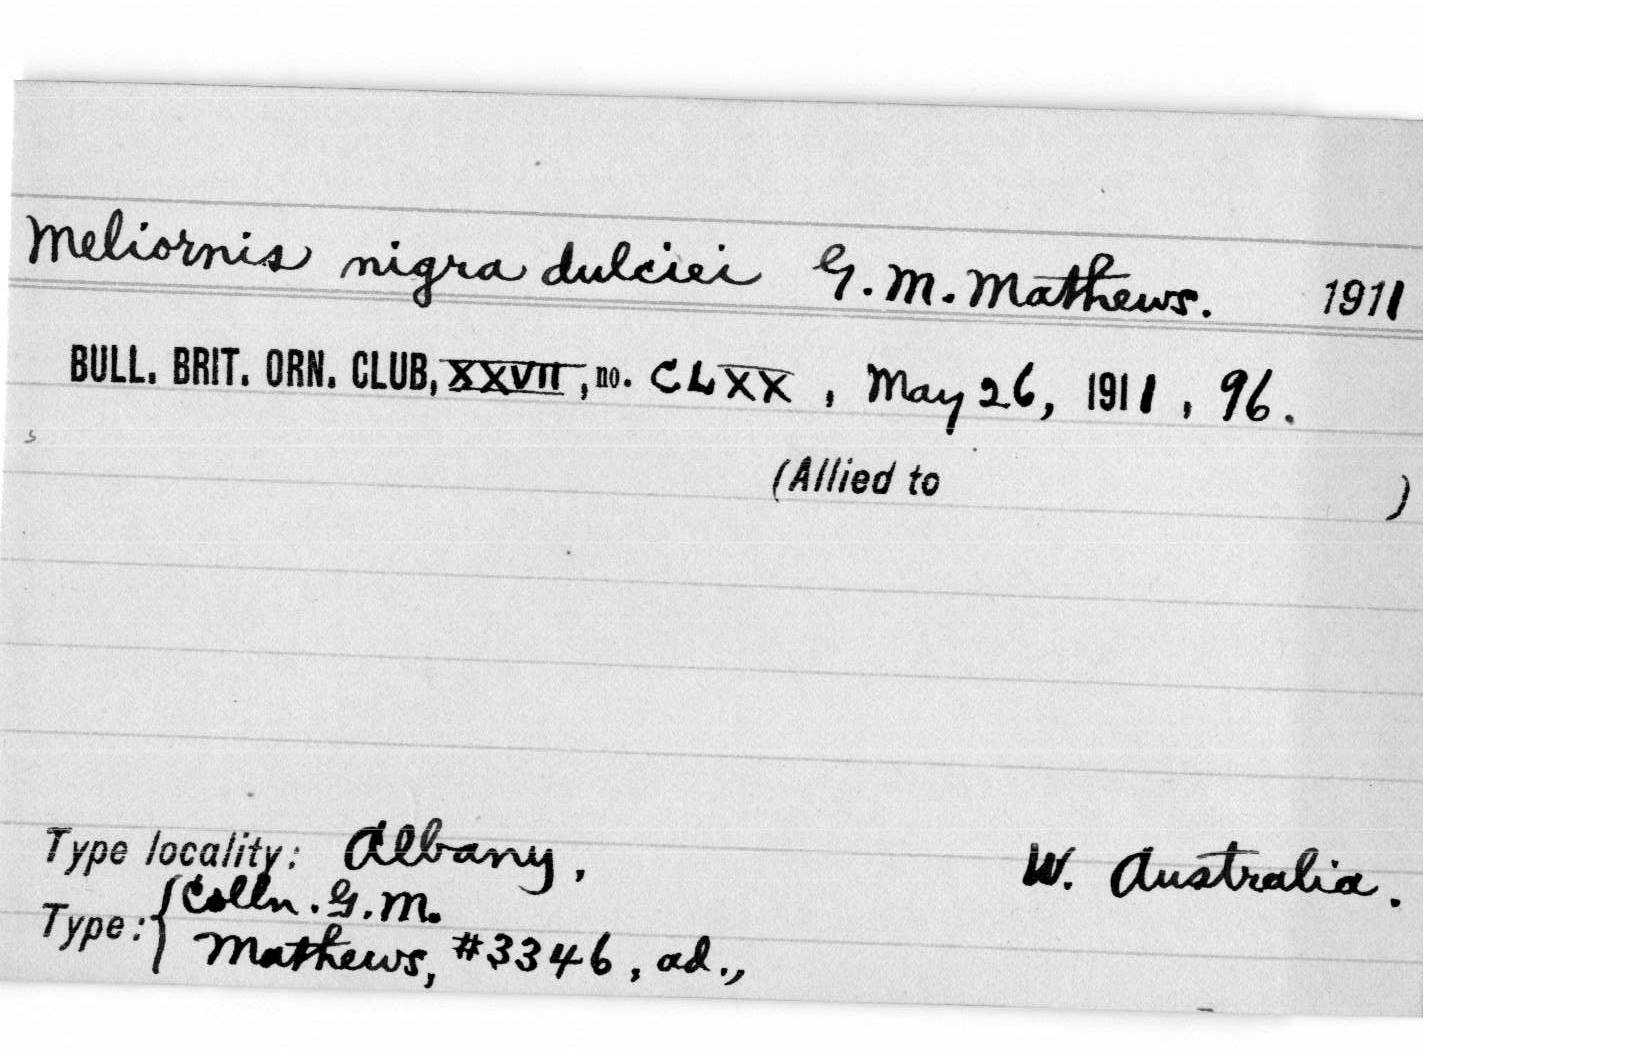 Meliornis nigra dulciei G. M. Mathews. 1911
BULL. BRIT. ORN. CLUB, XXVII, no. CLXX, May 26, 1911, 96.
(Allied to )
Type locality: Albany, W. Australia.
Type: { Colln. G. M.
Mathews, #3346, ad.,